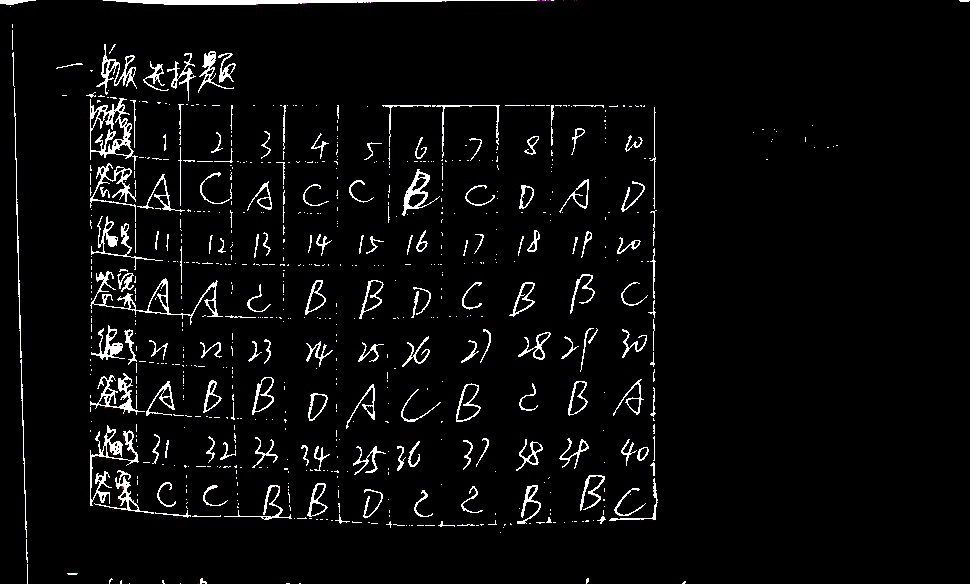 一.单项选择题
空格编号 1 2 3 4 5 6 7 8 9 10
答案 A C A C C B C D A D
编号 11 12 13 14 15 16 17 18 19 20
答案 A A C B B D C B B C
编号 21 22 23 24 25 26 27 28 29 30
答案 A B B D A C B C B A
编号 31 32 33 34 35 36 37 38 39 40
答案 C C B B D C C B B C